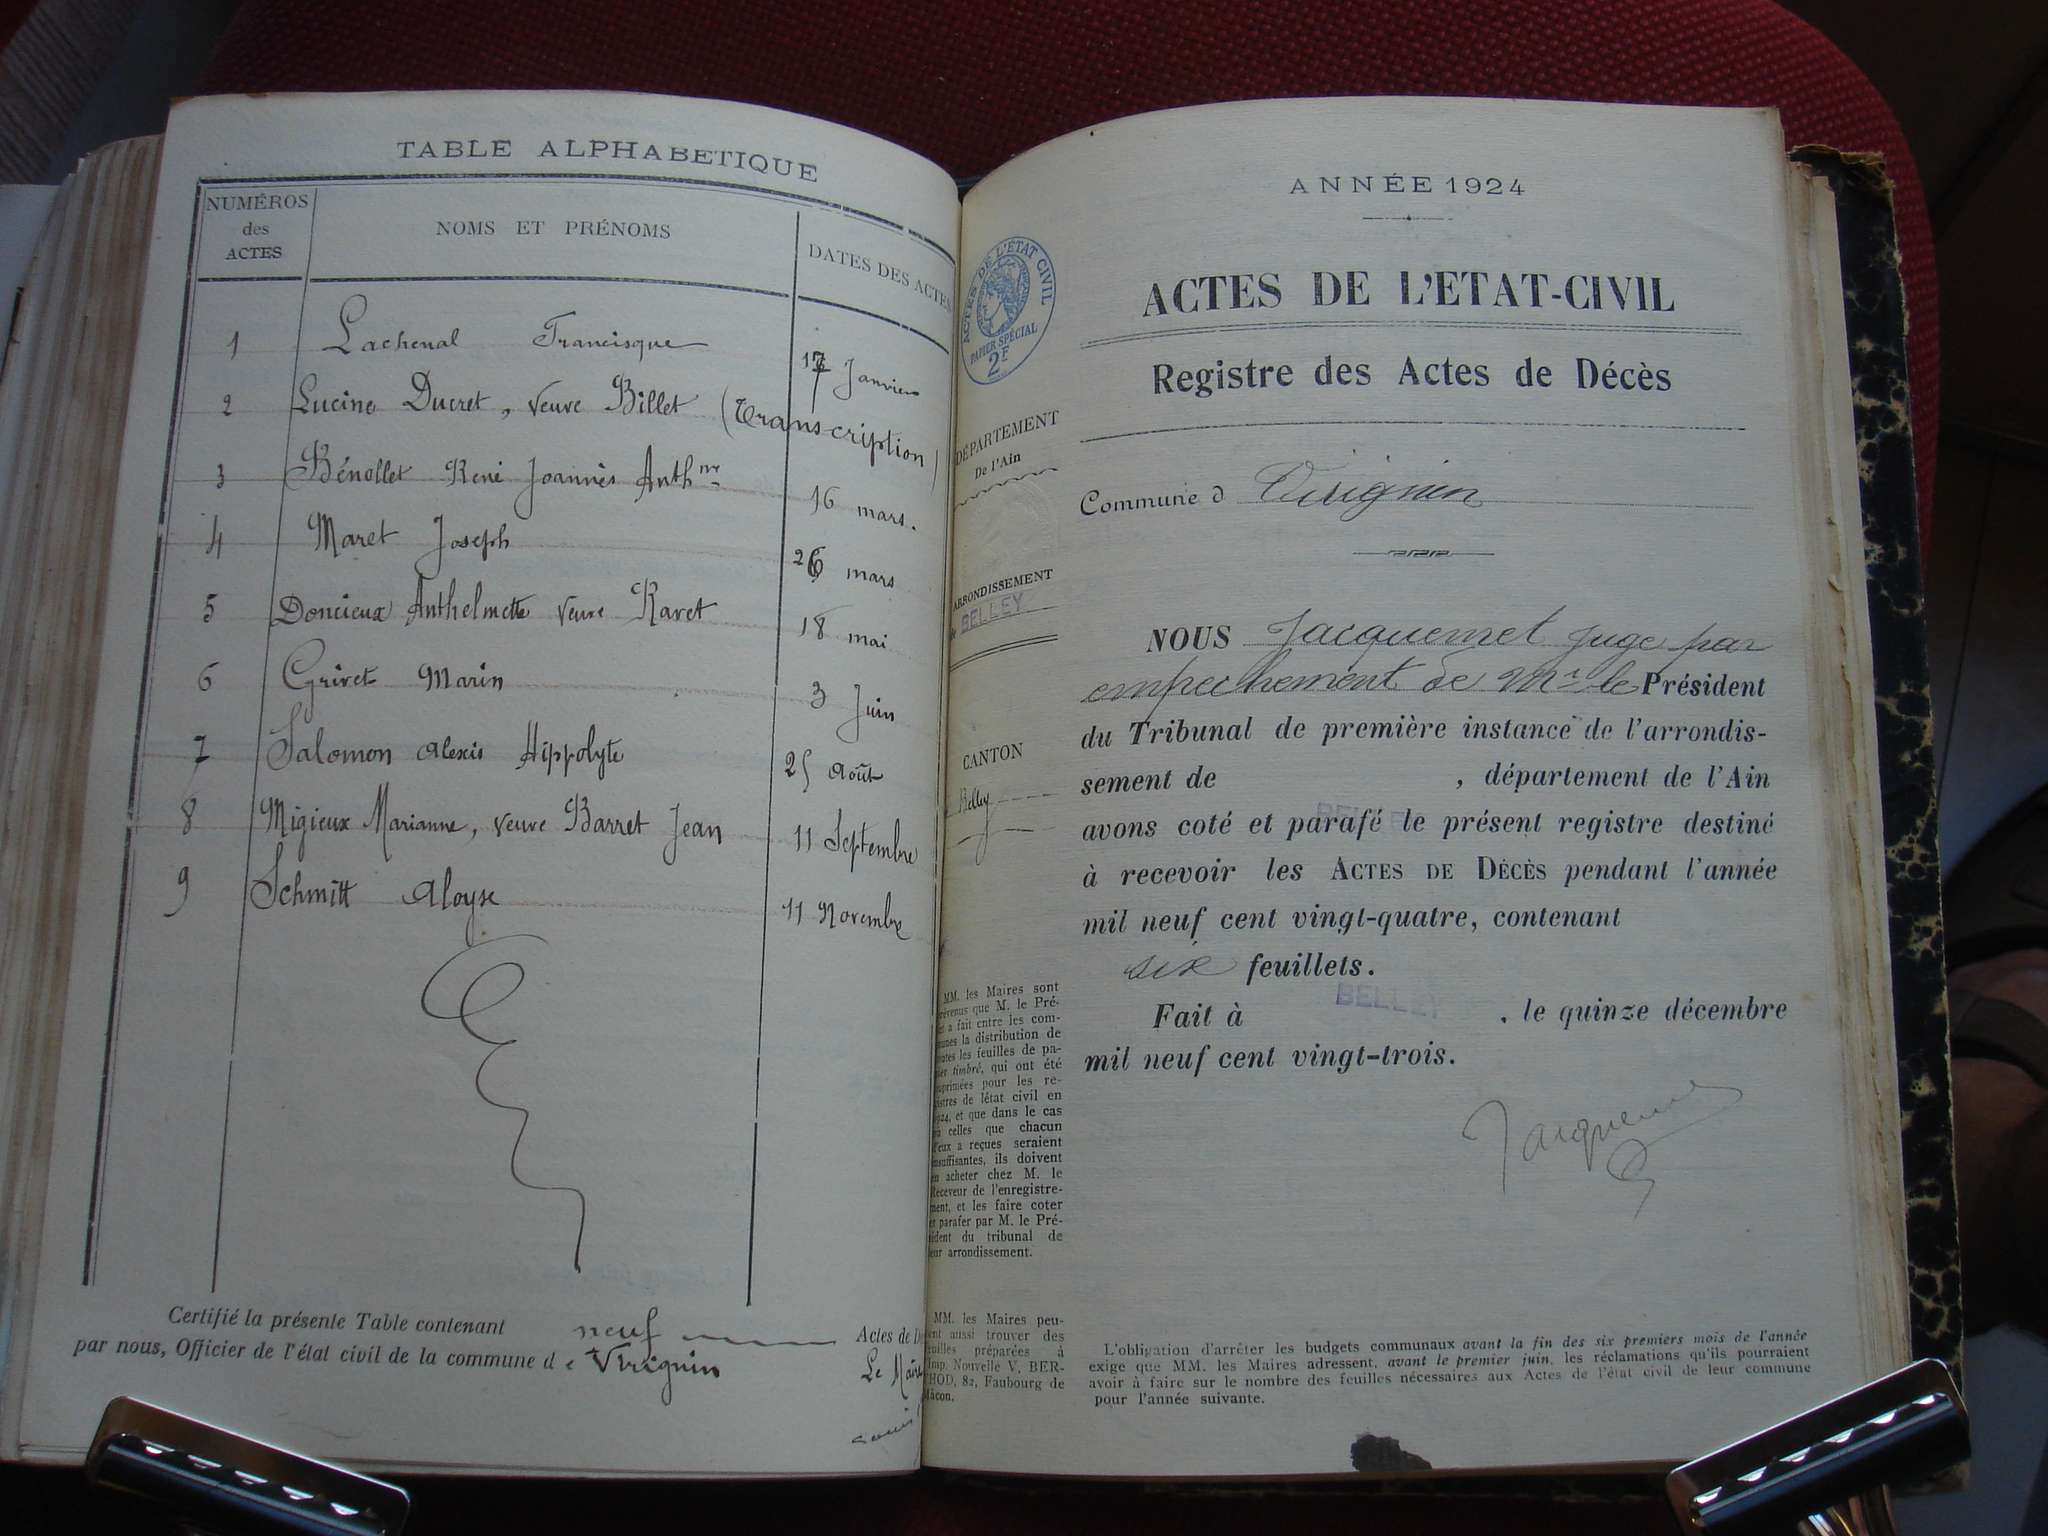 TABLE ALPHABETIQUE
NUMÉROS des ACTES
NOMS ET PRÉNOMS
DATES DES ACTES
1 Lachenal Francisque 17 Janvier
2 Lucine Ducret, veuve Billet (Transcription)
3 Bénollet René Joannès Anthme 16 mars.
4 Maret Joseph 26 mars
5 Doncieux Anthelmette veuve Ravet 18 mai
6 Grivet Marin 3 Juin
7 Salomon Alexis Hippolyte 25 Août
8 Migieux Marianne, veuve Barret Jean 11 Septembre
9 Schmitt Aloyse 11 Novembre
Certifié la présente Table contenant neuf Actes de
par nous, Officier de l'état civil de la commune d e Virignin
Le Maire
ACTES DE L'ÉTAT CIVIL
PAPIER SPÉCIAL
2F
DÉPARTEMENT
De l'Ain
ARRONDISSEMENT
de BELLEY
CANTON
Belley
MM. les Maires sont
prévenus que M. le Pré-
et a fait entre les com-
munes la distribution de
toutes les feuilles de pa-
pier timbré, qui ont été
imprimées pour les re-
gistres de létat civil en
1924, et que dans le cas
où celles que chacun
d'eux a reçues seraient
insuffisantes, ils doivent
en acheter chez M. le
Receveur de l'enregistre-
ment, et les faire coter
et parafer par M. le Pré-
sident du tribunal de
leur arrondissement.
MM. les Maires peu-
vent aussi trouver des
feuilles préparées à
Imp. Nouvelle V. BER-
THOD, 82, Faubourg de
Mâcon.
ANNÉE 1924
ACTES DE L'ETAT-CIVIL
Registre des Actes de Décès
Commune d Virignin
NOUS Jacquemet juge par
empechement de Mr le Président
du Tribunal de première instance de l'arrondis-
sement de , département de l'Ain
BELLEY
avons coté et parafé le présent registre destiné
à recevoir les ACTES DE DÉCÈS pendant l'année
mil neuf cent vingt-quatre, contenant
six feuillets.
BELLEY
Fait à , le quinze décembre
mil neuf cent vingt-trois.
Jacquemet
L'obligation d'arrêter les budgets communaux avant la fin des six premiers mois de l'année
exige que MM. les Maires adressent, avant le premier juin, les réclamations qu'ils pourraient
avoir à faire sur le nombre des feuilles nécessaires aux Actes de l'état civil de leur commune
pour l'année suivante.